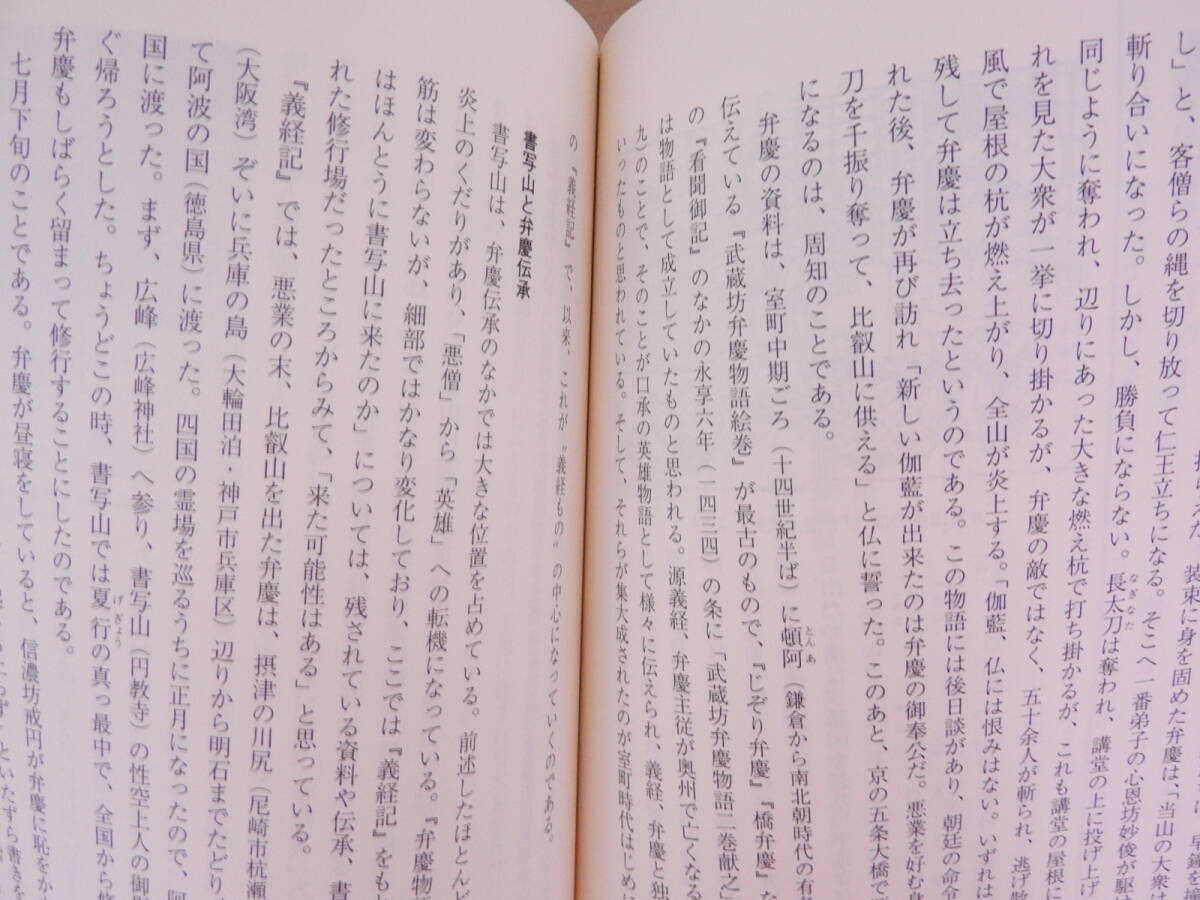 装束に身を固めた弁慶は、「当山の大衆は
し」と、客僧らの縄を切り放って仁王立ちになる。そこへ一番弟子の心恩坊妙俊が駆け
斬り合いになった。しかし、勝負にならない。長太刀は奪われ、講堂の上に投げ上げ
同じように奪われ、辺りにあった大きな燃え杭で打ち掛かるが、これも講堂の屋根に
れを見た大衆が一挙に切り掛かるが、弁慶の敵ではなく、五十余人が斬られ、逃げ散
風で屋根の杭が燃え上がり、全山が炎上する。「伽藍、仏には恨みはない。いずれは
残して弁慶は立ち去ったというのである。この物語には後日談があり、朝廷の命令
れた後、弁慶が再び訪れ「新しい伽藍が出来たのは弁慶の御奉公だ。悪業を好む身
刀を千振り奪って、比叡山に供える」と仏に誓った。このあと、京の五条大橋で
になるのは、周知のことである。
弁慶の資料は、室町中期ごろ（十四世紀半ば）に頓阿（鎌倉から南北朝時代の有
伝えている『武蔵坊弁慶物語絵巻』が最古のもので、『じぞり弁慶』『橋弁慶』な
の『看聞御記』のなかの永享六年（一四三四）の条に「武蔵坊弁慶物語二巻献之」
は物語として成立していたものと思われる。源義経、弁慶主従が奥州で亡くなる
九）のことで、そのことが口承の英雄物語として様々に伝えられ、義経、弁慶と独
いったものと思われている。そして、それらが集大成されたのが室町時代はじめに
の『義経記』で、以来、これが“義経もの”の中心になっていくのである。
書写山と弁慶伝承
書写山は、弁慶伝承のなかでは大きな位置を占めている。前述したほとんど
炎上のくだりがあり、「悪僧」から「英雄」への転機になっている。『弁慶物
筋は変わらないが、細部ではかなり変化しており、ここでは『義経記』をも
はほんとうに書写山に来たのか」については、残されている資料や伝承、書
れた修行場だったところからみて、「来た可能性はある」と思っている。
『義経記』では、悪業の末、比叡山を出た弁慶は、摂津の川尻（尼崎市杭瀬
（大阪湾）ぞいに兵庫の島（大輪田泊・神戸市兵庫区）辺りから明石までたどり
て阿波の国（徳島県）に渡った。四国の霊場を巡るうちに正月になったので、阿
国に渡った。まず、広峰（広峰神社）へ参り、書写山（円教寺）の性空上人の御影
ぐ帰ろうとした。ちょうどこの時、書写山では夏行の真っ最中で、全国から修
弁慶もしばらく留まって修行することにしたのである。
七月下旬のことである。弁慶が昼寝をしていると、信濃坊戒円が弁慶に恥をか